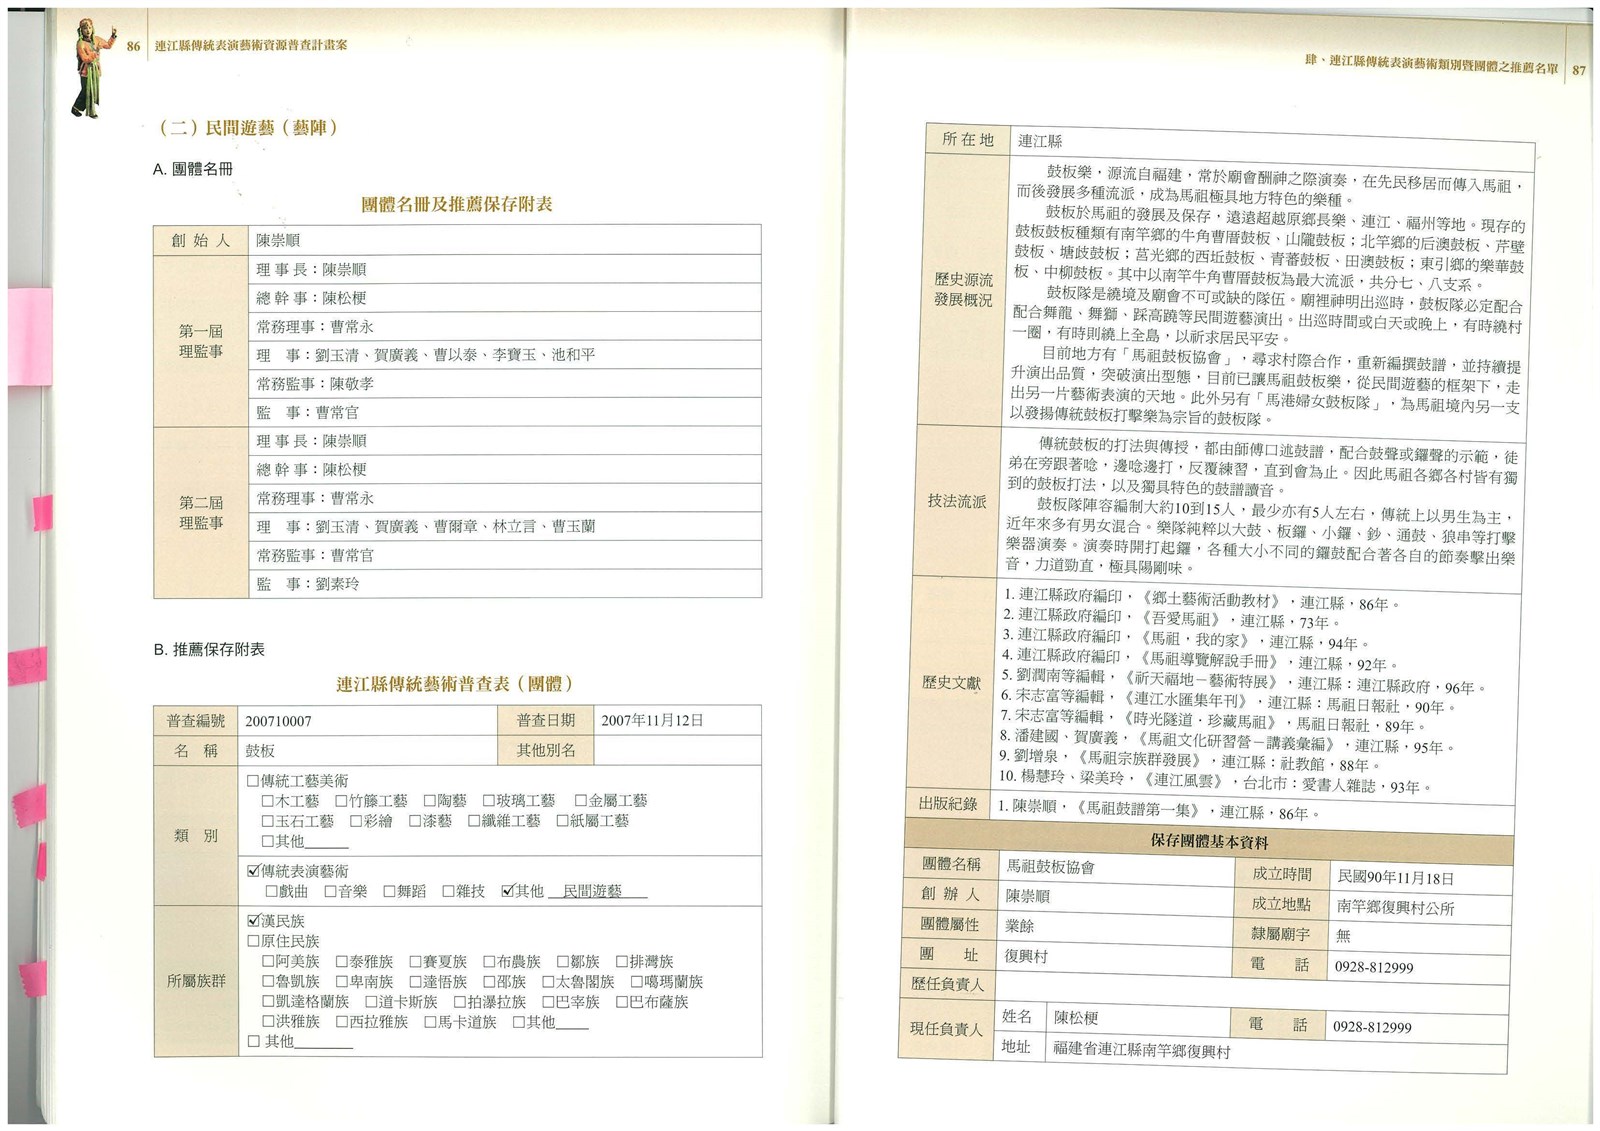 86 連江縣傳統表演藝術資源普查計畫案
（二）民間遊藝（藝陣）
A. 團體名冊
團體名冊及推薦保存附表
創始人 陳崇順
第一屆理監事
理事長：陳崇順
總幹事：陳松梗
常務理事：曹常永
理　事：劉玉清、賀廣義、曹以泰、李寶玉、池和平
常務監事：陳敬孝
監　事：曹常官
第二屆理監事
理事長：陳崇順
總幹事：陳松梗
常務理事：曹常永
理　事：劉玉清、賀廣義、曹爾章、林立言、曹玉蘭
常務監事：曹常官
監　事：劉素玲
B. 推薦保存附表
連江縣傳統藝術普查表（團體）
普查編號 200710007 普查日期 2007年11月12日
名　稱 鼓板 其他別名
類　別
□傳統工藝美術
□木工藝 □竹籐工藝 □陶藝 □玻璃工藝 □金屬工藝
□玉石工藝 □彩繪 □漆藝 □纖維工藝 □紙屬工藝
□其他______
☑傳統表演藝術
□戲曲 □音樂 □舞蹈 □雜技 ☑其他 民間遊藝
所屬族群
☑漢民族
□原住民族
□阿美族 □泰雅族 □賽夏族 □布農族 □鄒族 □排灣族
□魯凱族 □卑南族 □達悟族 □邵族 □太魯閣族 □噶瑪蘭族
□凱達格蘭族 □道卡斯族 □拍瀑拉族 □巴宰族 □巴布薩族
□洪雅族 □西拉雅族 □馬卡道族 □其他____
□ 其他________
肆、連江縣傳統表演藝術類別暨團體之推薦名單 87
所在地 連江縣
歷史源流發展概況
鼓板樂，源流自福建，常於廟會酬神之際演奏，在先民移居而傳入馬祖，
而後發展多種流派，成為馬祖極具地方特色的樂種。
鼓板於馬祖的發展及保存，遠遠超越原鄉長樂、連江、福州等地。現存的
鼓板鼓板種類有南竿鄉的牛角曹厝鼓板、山隴鼓板；北竿鄉的后澳鼓板、芹壁
鼓板、塘歧鼓板；莒光鄉的西坵鼓板、青蕃鼓板、田澳鼓板；東引鄉的樂華鼓
板、中柳鼓板。其中以南竿牛角曹厝鼓板為最大流派，共分七、八支系。
鼓板隊是繞境及廟會不可或缺的隊伍。廟裡神明出巡時，鼓板隊必定配合
配合舞龍、舞獅、踩高蹺等民間遊藝演出。出巡時間或白天或晚上，有時繞村
一圈，有時則繞上全島，以祈求居民平安。
目前地方有「馬祖鼓板協會」，尋求村際合作，重新編撰鼓譜，並持續提
升演出品質，突破演出型態，目前已讓馬祖鼓板樂，從民間遊藝的框架下，走
出另一片藝術表演的天地。此外另有「馬港婦女鼓板隊」，為馬祖境內另一支
以發揚傳統鼓板打擊樂為宗旨的鼓板隊。
技法流派
傳統鼓板的打法與傳授，都由師傅口述鼓譜，配合鼓聲或鑼聲的示範，徒
弟在旁跟著唸，邊唸邊打，反覆練習，直到會為止。因此馬祖各鄉各村皆有獨
到的鼓板打法，以及獨具特色的鼓譜讀音。
鼓板隊陣容編制大約10到15人，最少亦有5人左右，傳統上以男生為主，
近年來多有男女混合。樂隊純粹以大鼓、板鑼、小鑼、鈔、通鼓、狼串等打擊
樂器演奏。演奏時開打起鑼，各種大小不同的鑼鼓配合著各自的節奏擊出樂
音，力道勁直，極具陽剛味。
歷史文獻
1. 連江縣政府編印，《鄉土藝術活動教材》，連江縣，86年。
2. 連江縣政府編印，《吾愛馬祖》，連江縣，73年。
3. 連江縣政府編印，《馬祖，我的家》，連江縣，94年。
4. 連江縣政府編印，《馬祖導覽解說手冊》，連江縣，92年。
5. 劉潤南等編輯，《祈天福地－藝術特展》，連江縣：連江縣政府，96年。
6. 宋志富等編輯，《連江水匯集年刊》，連江縣：馬祖日報社，90年。
7. 宋志富等編輯，《時光隧道．珍藏馬祖》，馬祖日報社，89年。
8. 潘建國、賀廣義，《馬祖文化研習營－講義彙編》，連江縣，95年。
9. 劉增泉，《馬祖宗族群發展》，連江縣：社教館，88年。
10. 楊慧玲、梁美玲，《連江風雲》，台北市：愛書人雜誌，93年。
出版紀錄 1. 陳崇順，《馬祖鼓譜第一集》，連江縣，86年。
保存團體基本資料
團體名稱 馬祖鼓板協會 成立時間 民國90年11月18日
創辦人 陳崇順 成立地點 南竿鄉復興村公所
團體屬性 業餘 隸屬廟宇 無
團　址 復興村 電　話 0928-812999
歷任負責人
現任負責人 姓名 陳松梗 電　話 0928-812999
地址 福建省連江縣南竿鄉復興村